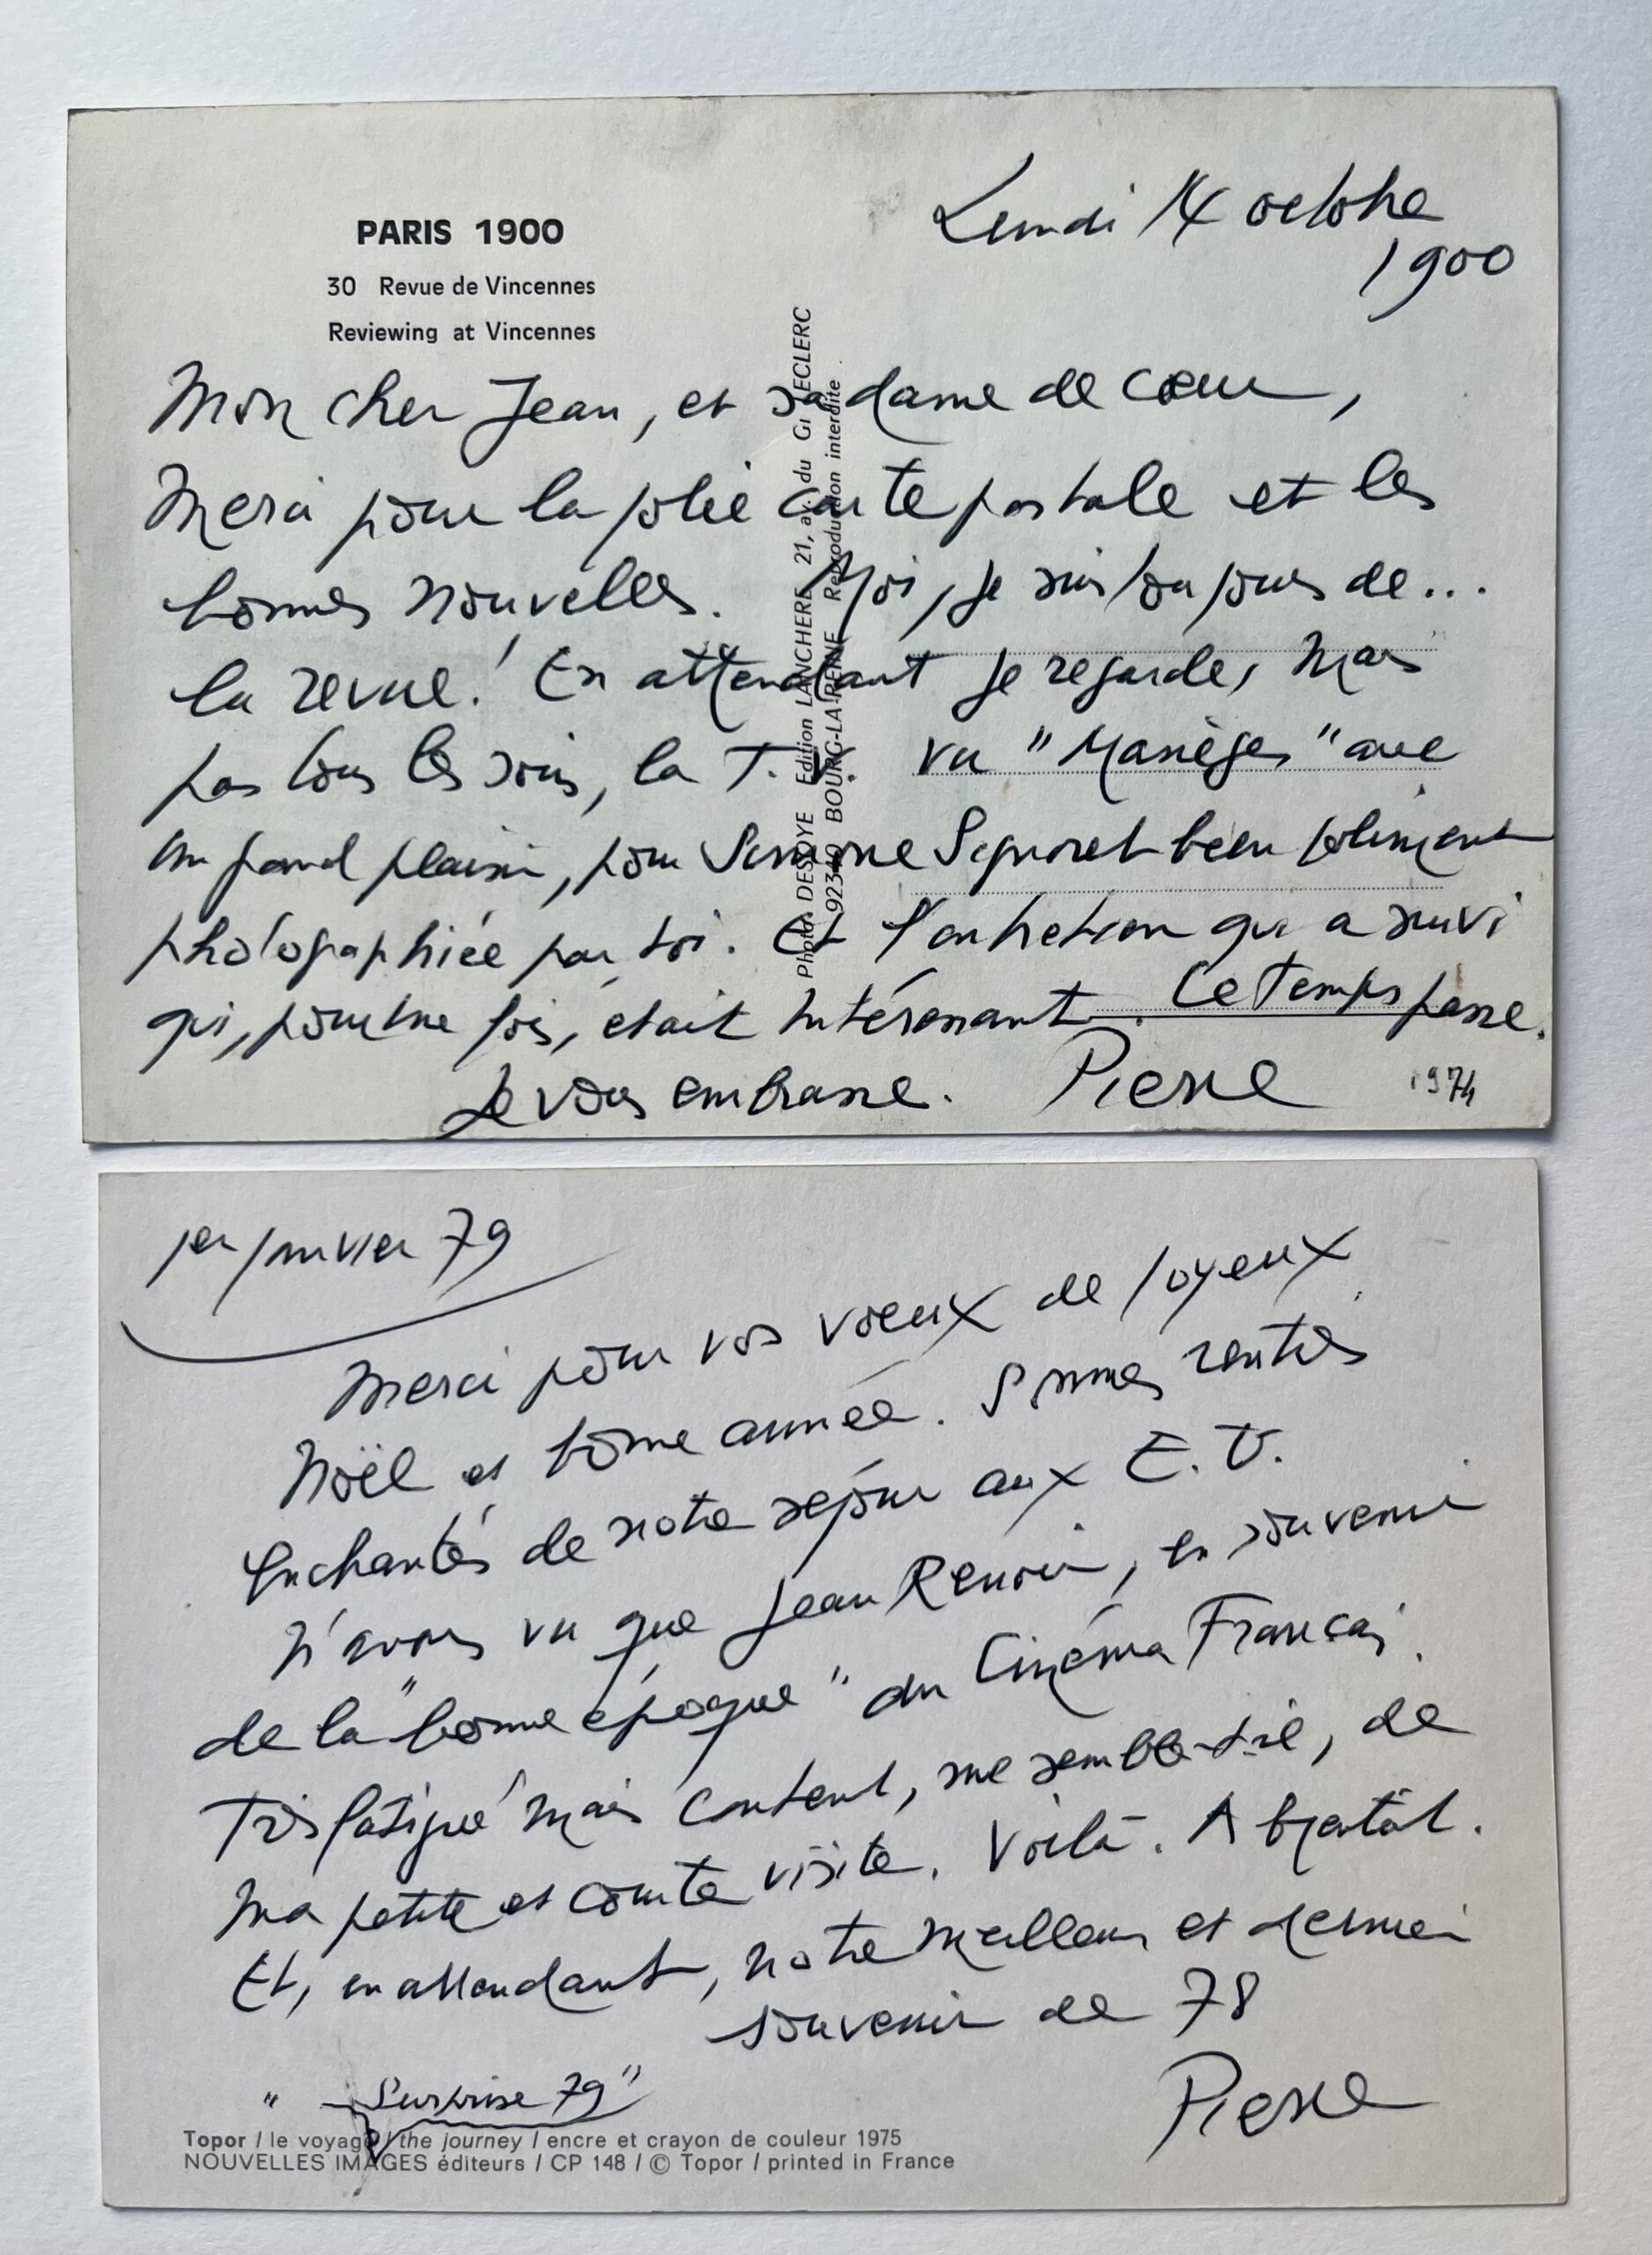 PARIS 1900
30 Revue de Vincennes
Reviewing at Vincennes
Lundi 14 octobre
1900
Mon cher Jean, et sa dame de cœur,
Merci pour la jolie carte postale et les
bonnes nouvelles. Moi, je suis toujours de...
la revue! En attendant je regarde, mais
pas tous les soirs, la T.V. Vu "Manèges" avec
un grand plaisir, pour Simone Signoret bien joliment
photographiée par toi. Et l'entretien qui a suivi
qui, pour une fois, était intéressant. Le temps passe.
Je vous embrasse. Pierre
1974
Photo DESOYE Edition LANCHERE 21, av. du Gl LECLERC
92340 BOURG-LA-REINE Reproduction interdite
1er janvier 79
Merci pour vos vœux de joyeux
Noël et bonne année. Sommes rentrés
enchantés de notre séjour aux E.U.
N'avons vu que Jean Renoir, en souvenir
de la "bonne époque" du Cinéma Français.
Très fatigué mais content, me semble-t-il, de
ma petite et courte visite. Voilà. A bientôt.
Et, en attendant, notre meilleur et dernier
souvenir de 78
Pierre
"Surprise 79"
Topor / le voyage / the journey / encre et crayon de couleur 1975
NOUVELLES IMAGES éditeurs / CP 148 / © Topor / printed in France